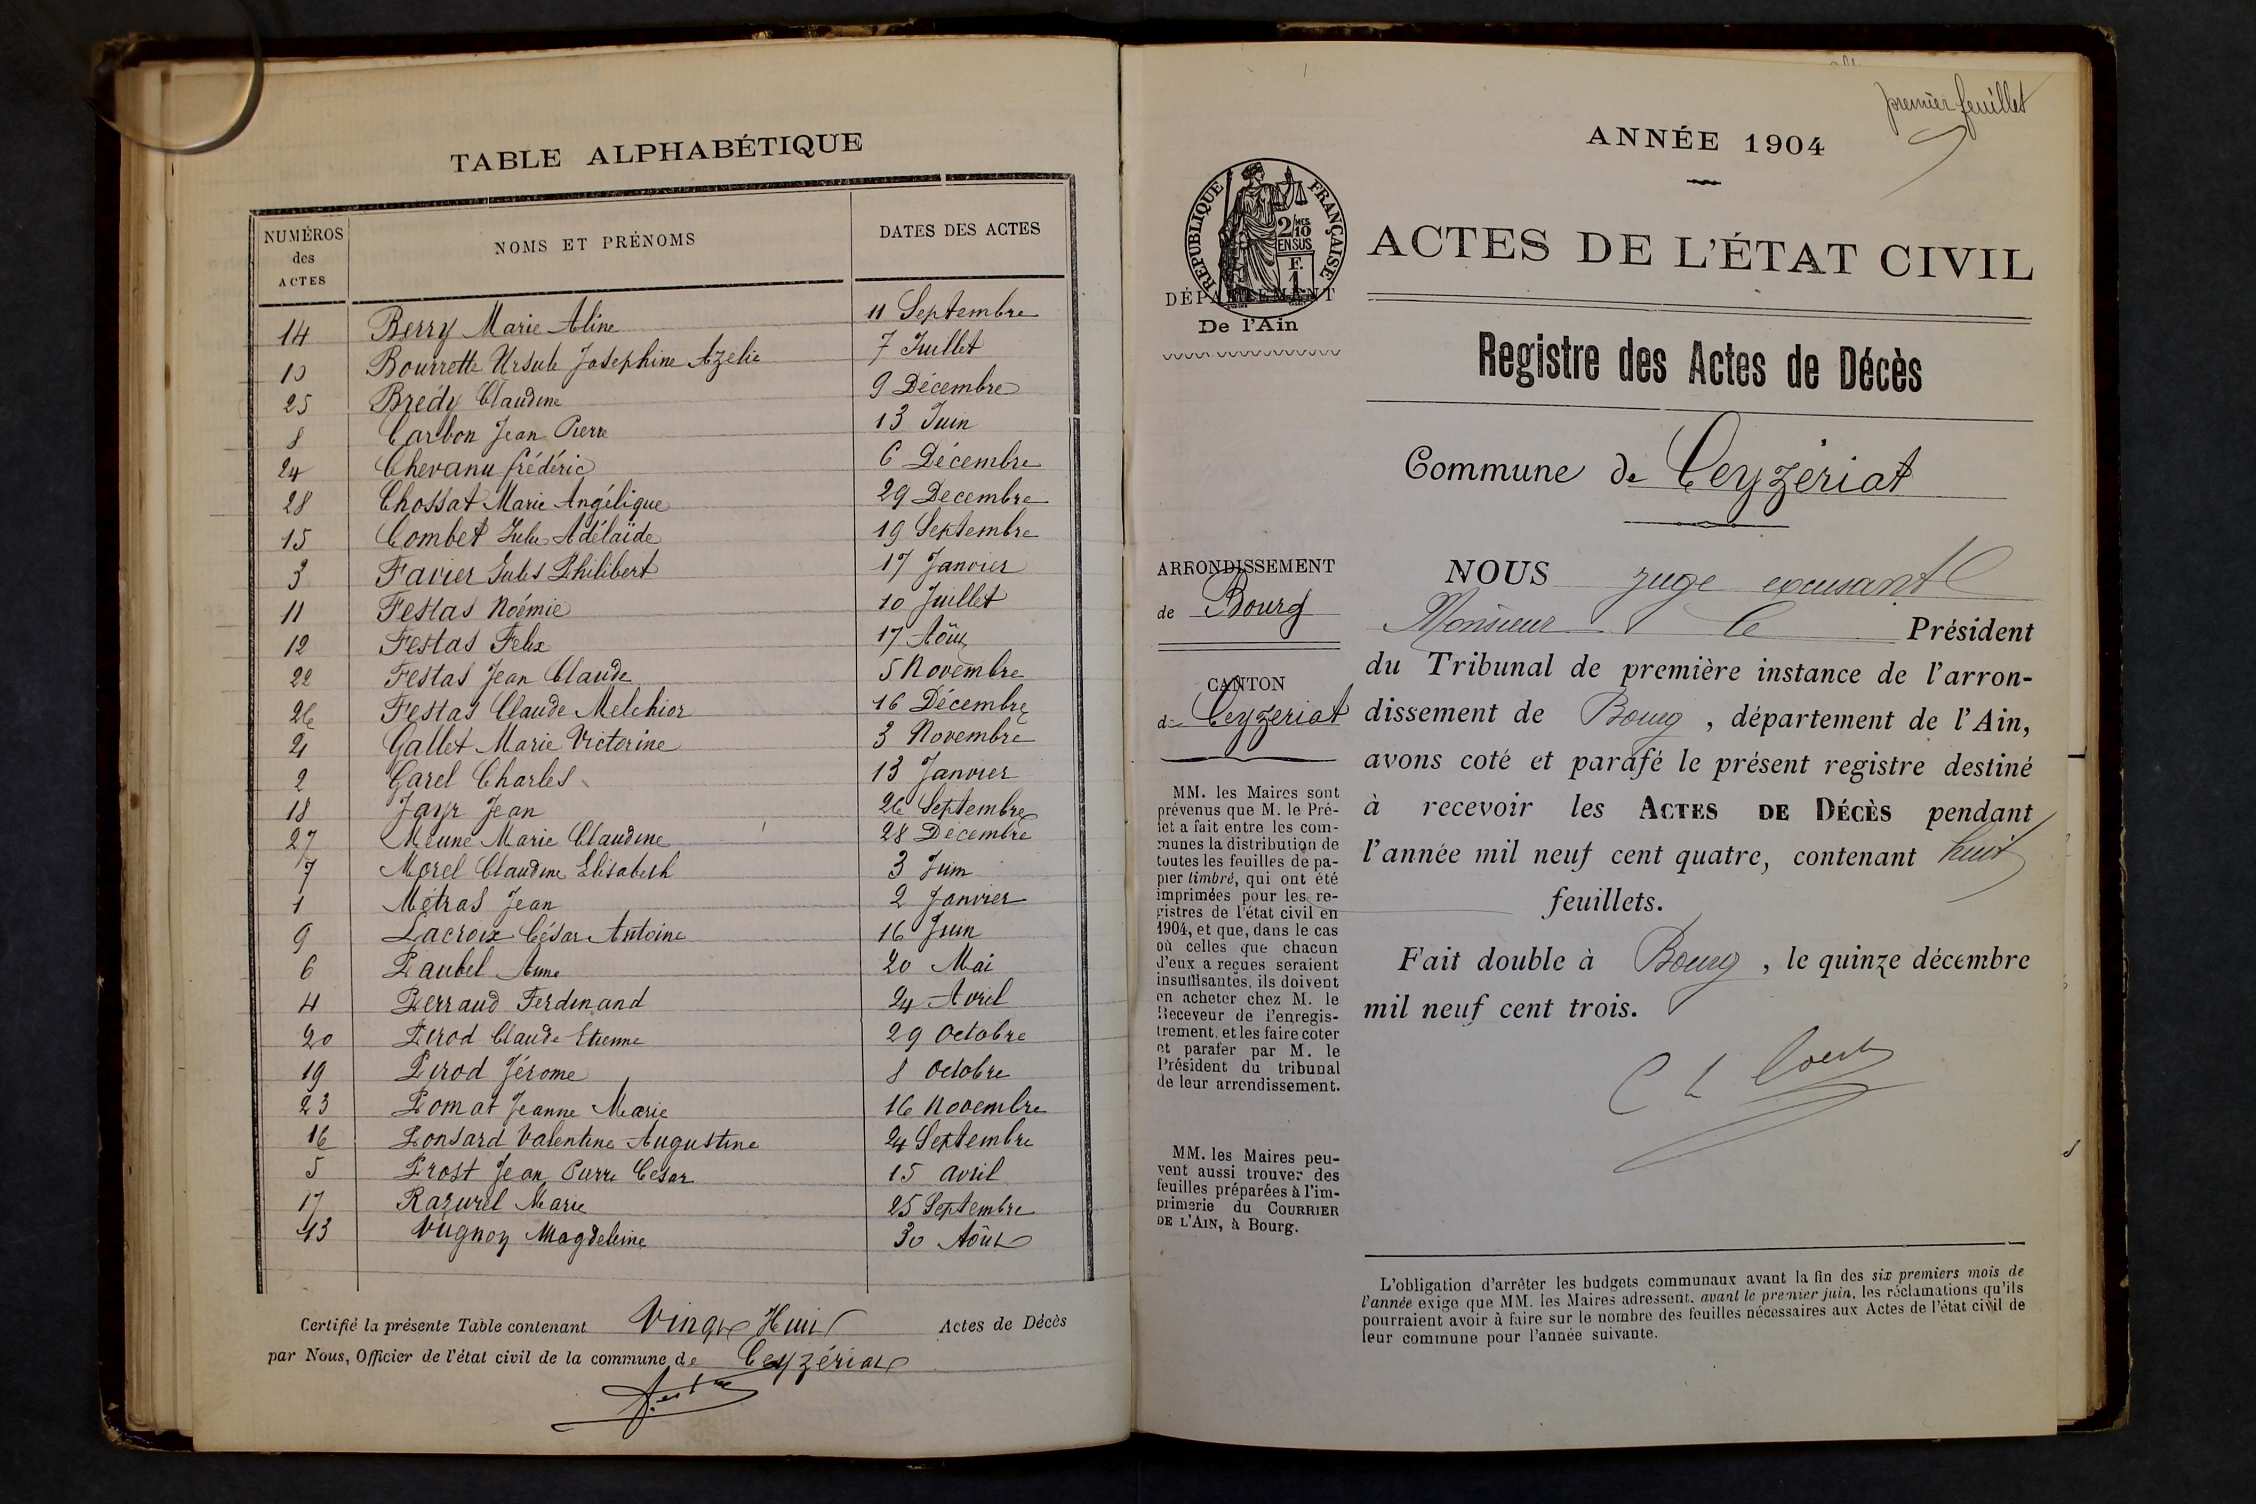 TABLE ALPHABÉTIQUE
NUMÉROS des ACTES NOMS ET PRÉNOMS DATES DES ACTES
14 Berry Marie Aline 11 Septembre
10 Bourrette Ursule Josephine Azelie 7 Juillet
25 Brédy Claudine 9 Décembre
8 Carbon Jean Pierre 13 Juin
24 Chevanu frédéric 6 Décembre
28 Chossat Marie Angélique 29 Decembre
15 Combet Julie Adélaïde 19 Septembre
3 Favier Jules Philibert 17 Janvier
11 Festas Noémie 10 Juillet
12 Festas Felix 17 Aôut
22 Festas Jean Claude 5 Novembre
26 Festas Claude Melchior 16 Décembre
21 Gallet Marie Victorine 3 Novembre
2 Garel Charles 13 Janvier
18 Jayr Jean 26 Septembre
27 Meune Marie Claudine 28 Decembre
7 Morel Claudine Elisabeth 3 Juin
1 Métras Jean 2 Janvier
9 Lacroix César Antoine 16 Juin
6 Paubel Anne 20 Mai
4 Perraud Ferdinand 24 Avril
20 Pirod Claude Etienne 29 Octobre
19 Pirod Jérome 8 Octobre
23 Pomat Jeanne Marie 16 Novembre
16 Ponsard Valentine Augustine 24 Septembre
5 Prost Jean Pierre César 15 avril
17 Razurel Marie 25 Septembre
13 Vugnoy Magdeleine 30 Aôut
Certifié la présente Table contenant Vingt Huit Actes de Décès
par Nous, Officier de l'état civil de la commune de Ceyzériat
premier feuillet
ANNÉE 1904
RÉPUBLIQUE FRANÇAISE
2/10 MES
EN SUS
F.
1
DÉPARTEMENT
De l'Ain
ACTES DE L'ÉTAT CIVIL
Registre des Actes de Décès
Commune de Ceyzériat
ARRONDISSEMENT
de Bourg
CANTON
de Ceyzeriat
MM. les Maires sont
prévenus que M. le Pré-
fet a fait entre les com-
munes la distribution de
toutes les feuilles de pa-
pier timbré, qui ont été
imprimées pour les re-
gistres de l'état civil en
1904, et que, dans le cas
où celles que chacun
d'eux a reçues seraient
insuffisantes, ils doivent
en acheter chez M. le
Receveur de l'enregis-
trement, et les faire coter
et parafer par M. le
Président du tribunal
de leur arrondissement.
MM. les Maires peu-
vent aussi trouver des
feuilles préparées à l'im-
primerie du COURRIER
DE L'AIN, à Bourg.
NOUS juge
Monsieur le Président
du Tribunal de première instance de l'arron-
dissement de Bourg, département de l'Ain,
avons coté et parafé le présent registre destiné
à recevoir les ACTES DE DÉCÈS pendant
l'année mil neuf cent quatre, contenant huit
feuillets.
Fait double à Bourg, le quinze décembre
mil neuf cent trois.
L'obligation d'arrêter les budgets communaux avant la fin des six premiers mois de
l'année exige que MM. les Maires adressent, avant le premier juin, les réclamations qu'ils
pourraient avoir à faire sur le nombre des feuilles nécessaires aux Actes de l'état civil de
leur commune pour l'année suivante.